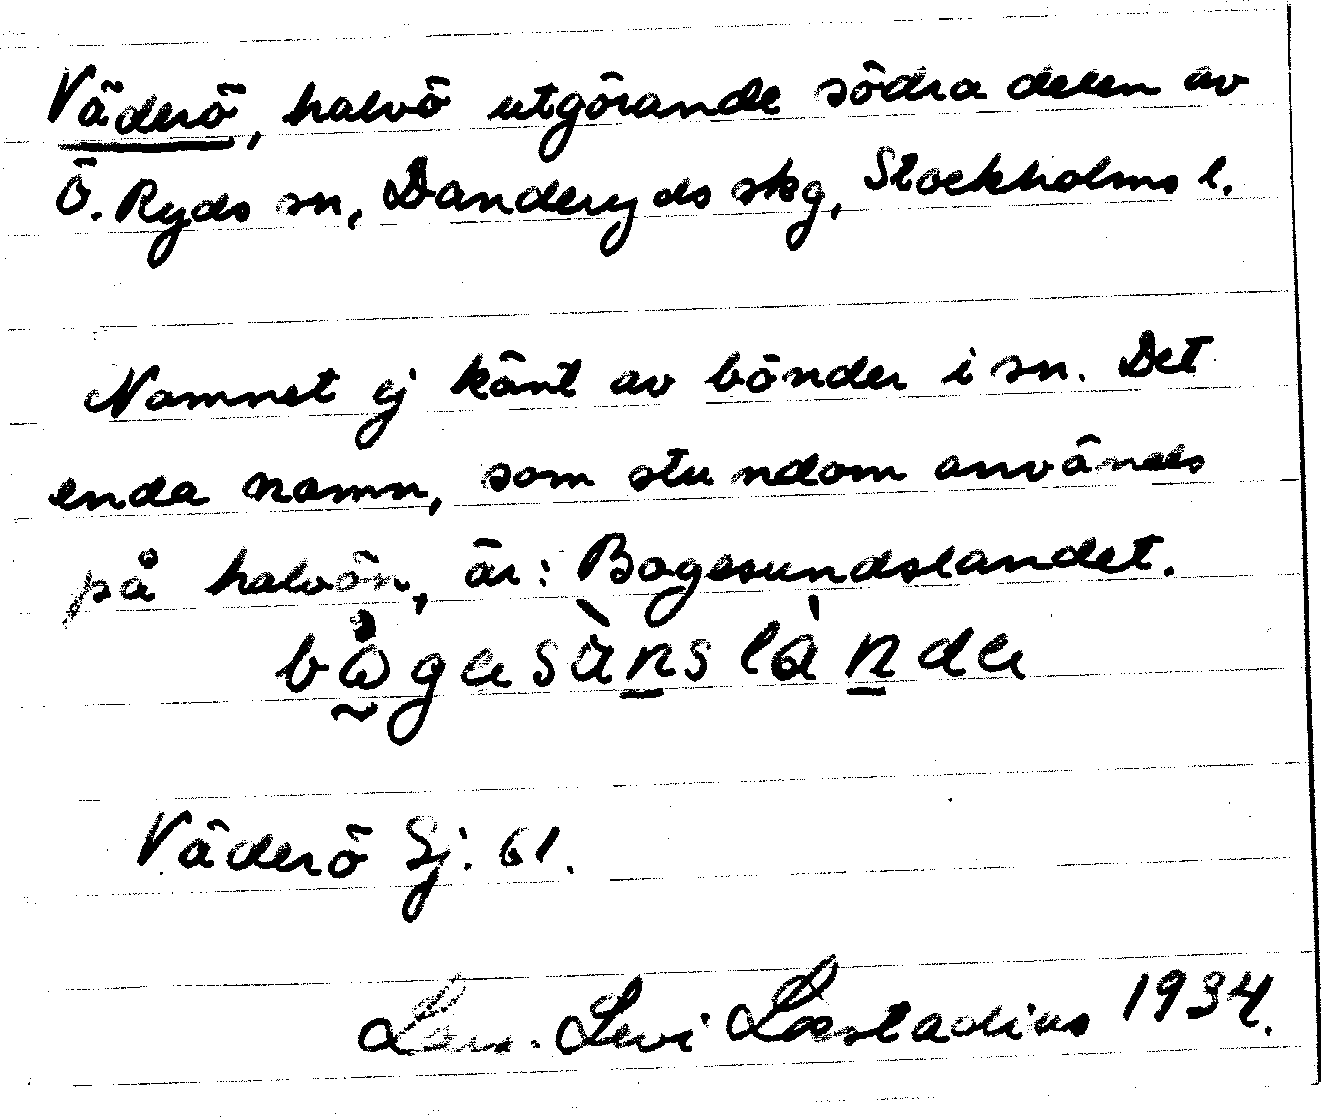 Väderö, halvö utgörande södra delen av
Ö. Ryds sn, Danderyds skg, Stockholms l.
Namnet ej känt av bönder i sn. Det
enda namn, som stundom användes
på halvön, är: Bogesundslandet.
Väderö Sj. 61.
Lars-Levi Læstadius 1934.